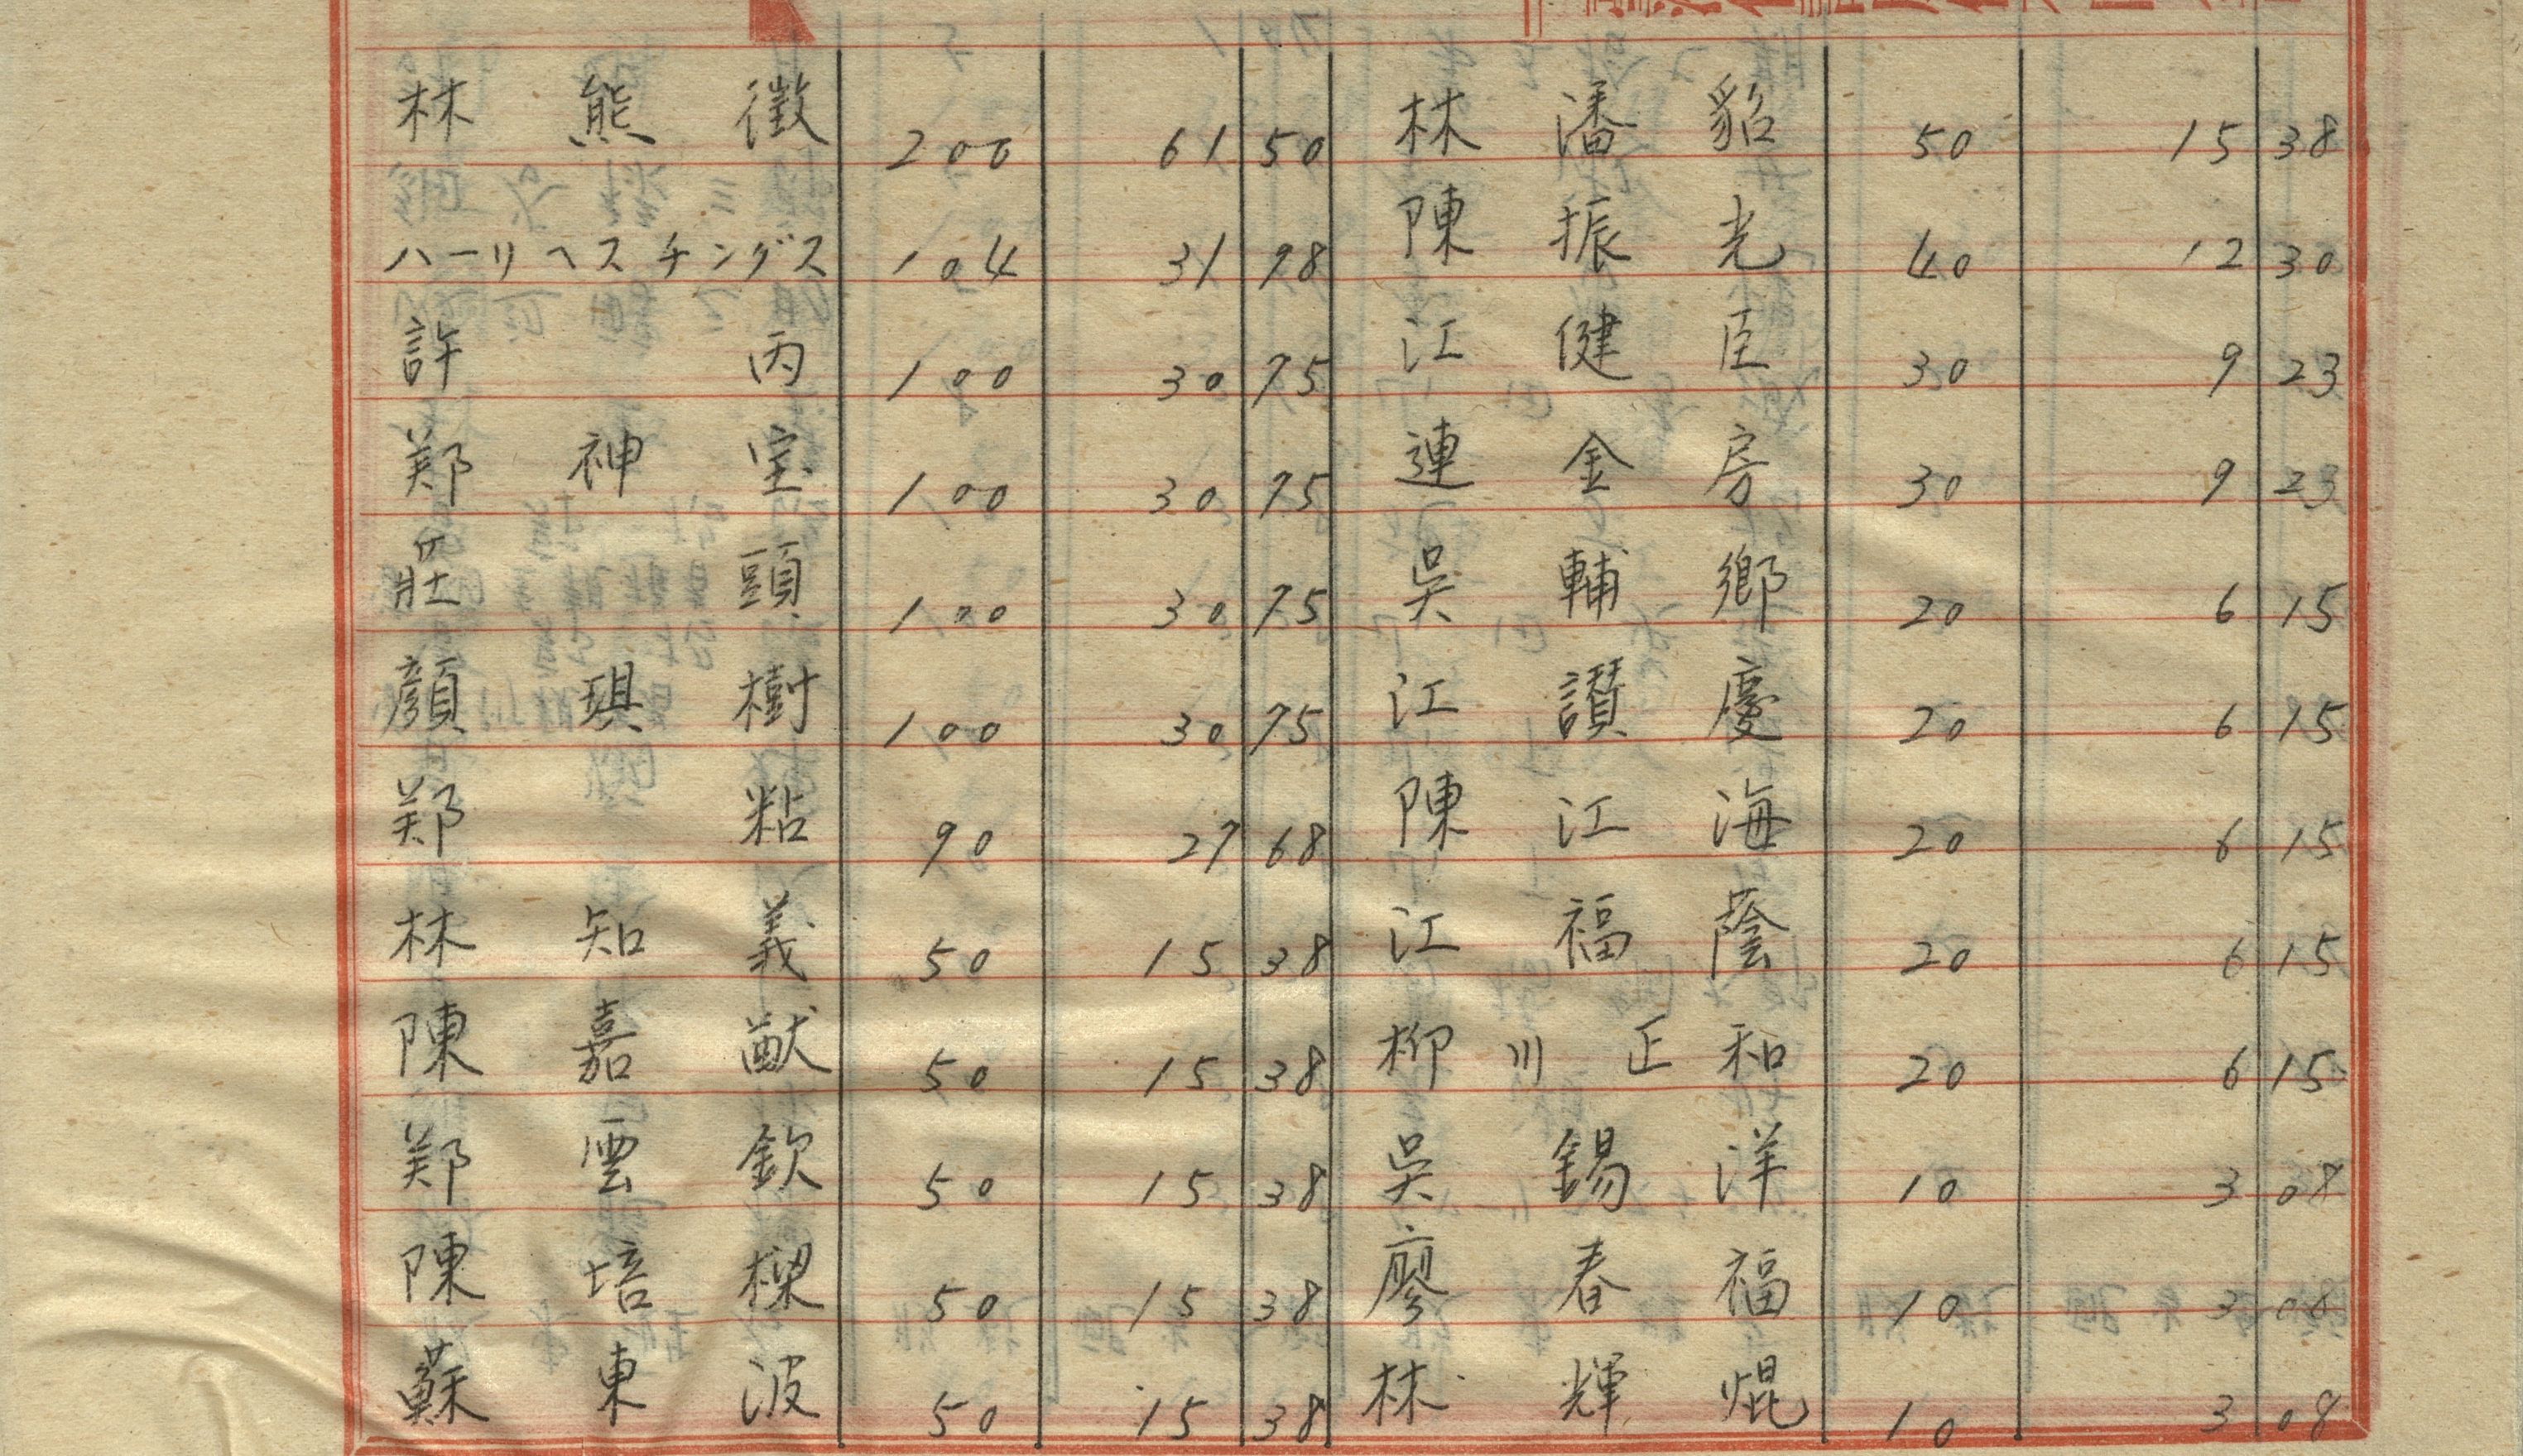 林熊徵 200 61 50 林潘貂 50 15 38
ハーリヘスチングス 104 31 98 陳振光 40 12 30
許丙 100 30 75 江健臣 30 9 23
鄭神宝 100 30 75 連金房 30 9 23
莊頭 100 30 75 吳輔鄉 20 6 15
顏琪樹 100 30 75 江讃慶 20 6 15
鄭粘 90 27 68 陳江海 20 6 15
林知義 50 15 38 江福蔭 20 6 15
陳嘉猷 50 15 38 柳川正和 20 6 15
鄭雲欽 50 15 38 吳錫洋 10 3 08
陳培樑 50 15 38 廖春福 10 3 08
蘇東波 50 15 38 林輝焜 10 3 08